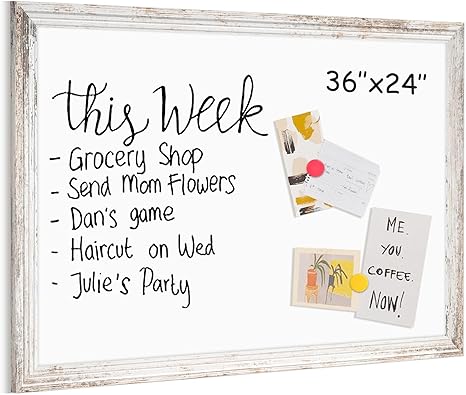 36"x24"
this Week
- Grocery Shop
- Send Mom Flowers
- Dan's game
- Haircut on Wed
- Julie's Party
ME.
YOU.
COFFEE.
NOW!